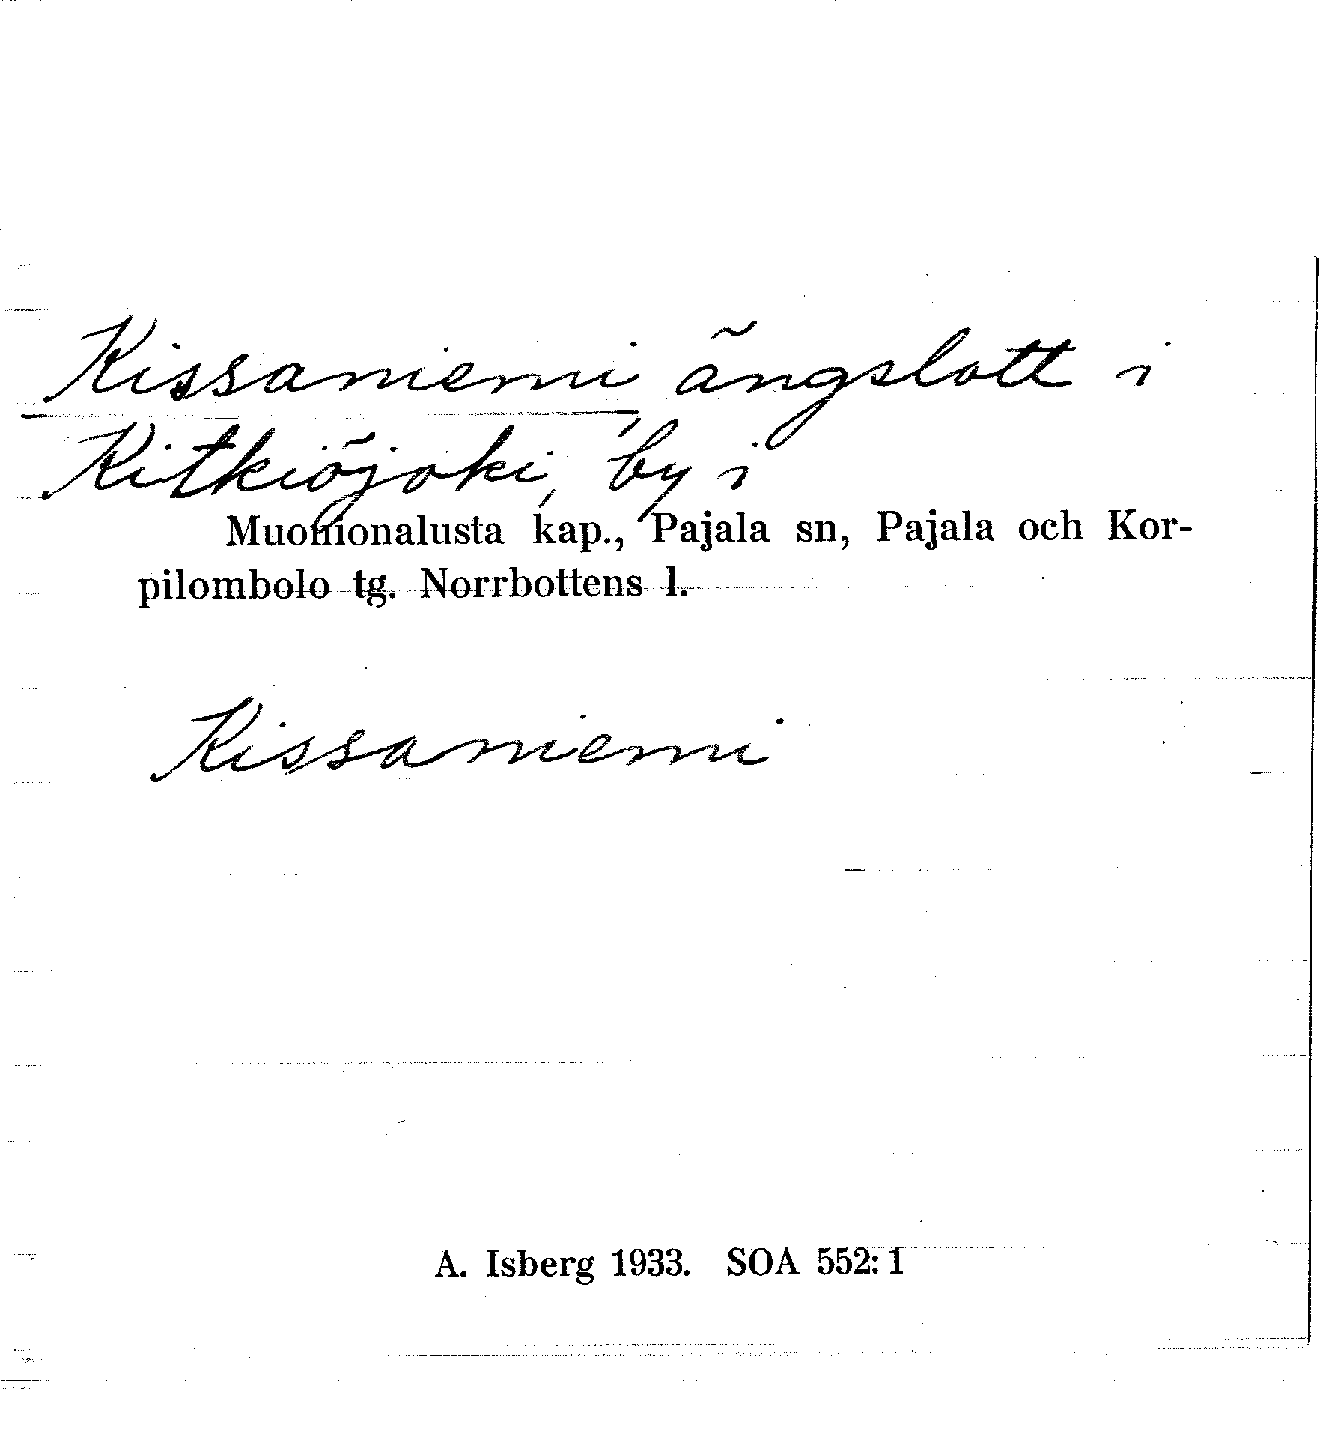 Kissaniemi, ängslott i
Kitkiöjoki, by i
Muonionalusta kap., Pajala sn, Pajala och Kor-
pilombolo tg. Norrbottens l.
Kissaniemi
A. Isberg 1933. SOA 552:1